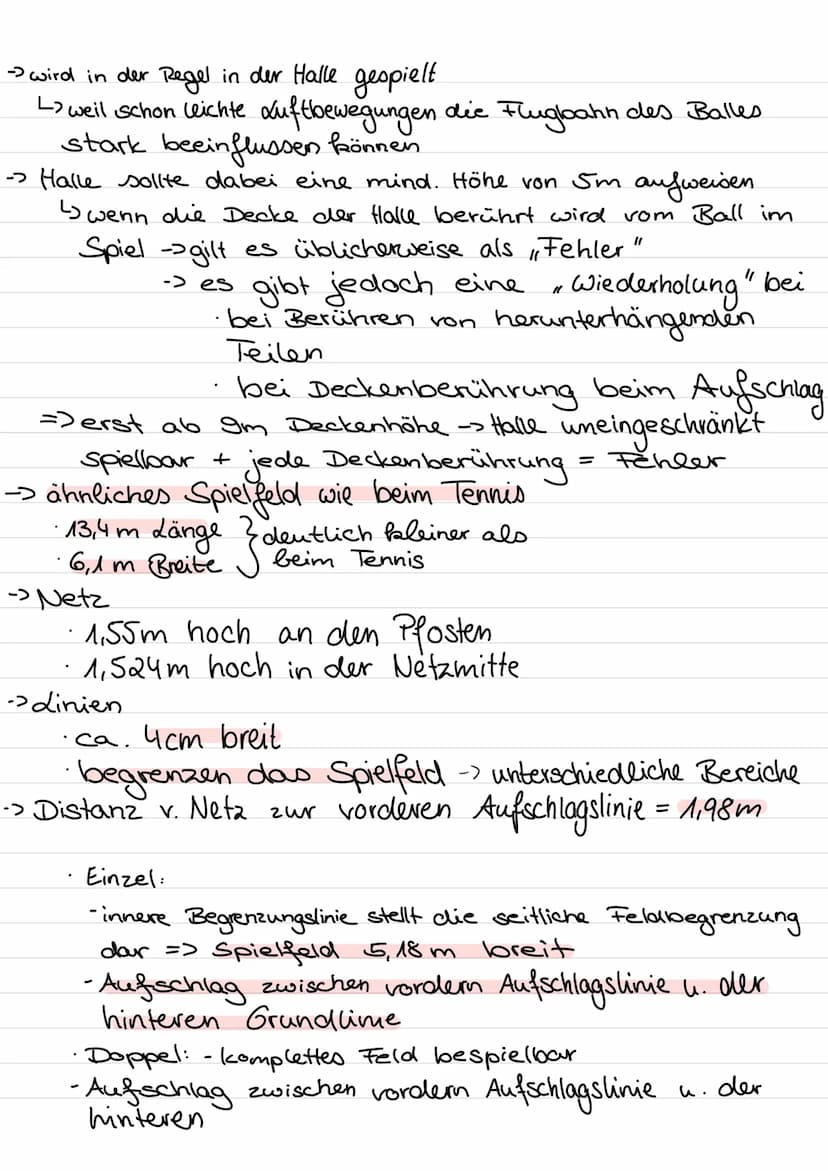 -> wird in der Regel in der Halle gespielt
↳ weil schon leichte Luftbewegungen die Flugbahn des Balles
stark beeinflussen können
-> Halle sollte dabei eine mind. Höhe von 5m aufweisen
↳ wenn die Decke der Halle berührt wird vom Ball im
Spiel -> gilt es üblicherweise als „Fehler"
-> es gibt jedoch eine „Wiederholung" bei
· bei Berühren von herunterhängenden
Teilen
· bei Deckenberührung beim Aufschlag
=> erst ab 9m Deckenhöhe -> Halle uneingeschränkt
spielbar + jede Deckenberührung = Fehler
-> ähnliches Spielfeld wie beim Tennis
· 13,4 m Länge } deutlich kleiner als
· 6,1 m Breite } beim Tennis
-> Netz
· 1,55m hoch an den Pfosten
· 1,524m hoch in der Netzmitte
-> Linien
· ca. 4cm breit
· begrenzen das Spielfeld -> unterschiedliche Bereiche
-> Distanz v. Netz zur vorderen Aufschlagslinie = 1,98m
· Einzel:
- innere Begrenzungslinie stellt die seitliche Feldbegrenzung
dar => Spielfeld 5,18m breit
- Aufschlag zwischen vordern Aufschlagslinie u. der
hinteren Grundlinie
· Doppel: - komplettes Feld bespielbar
- Aufschlag zwischen vordern Aufschlagslinie u. der
hinteren